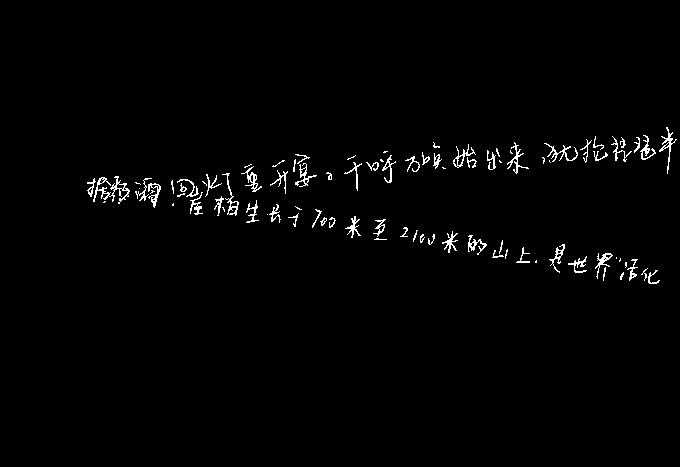 酒回灯重开宴。千呼万唤始出来,犹抱琵琶半
崖柏生长于700米至2100米的山上,是世界“活化